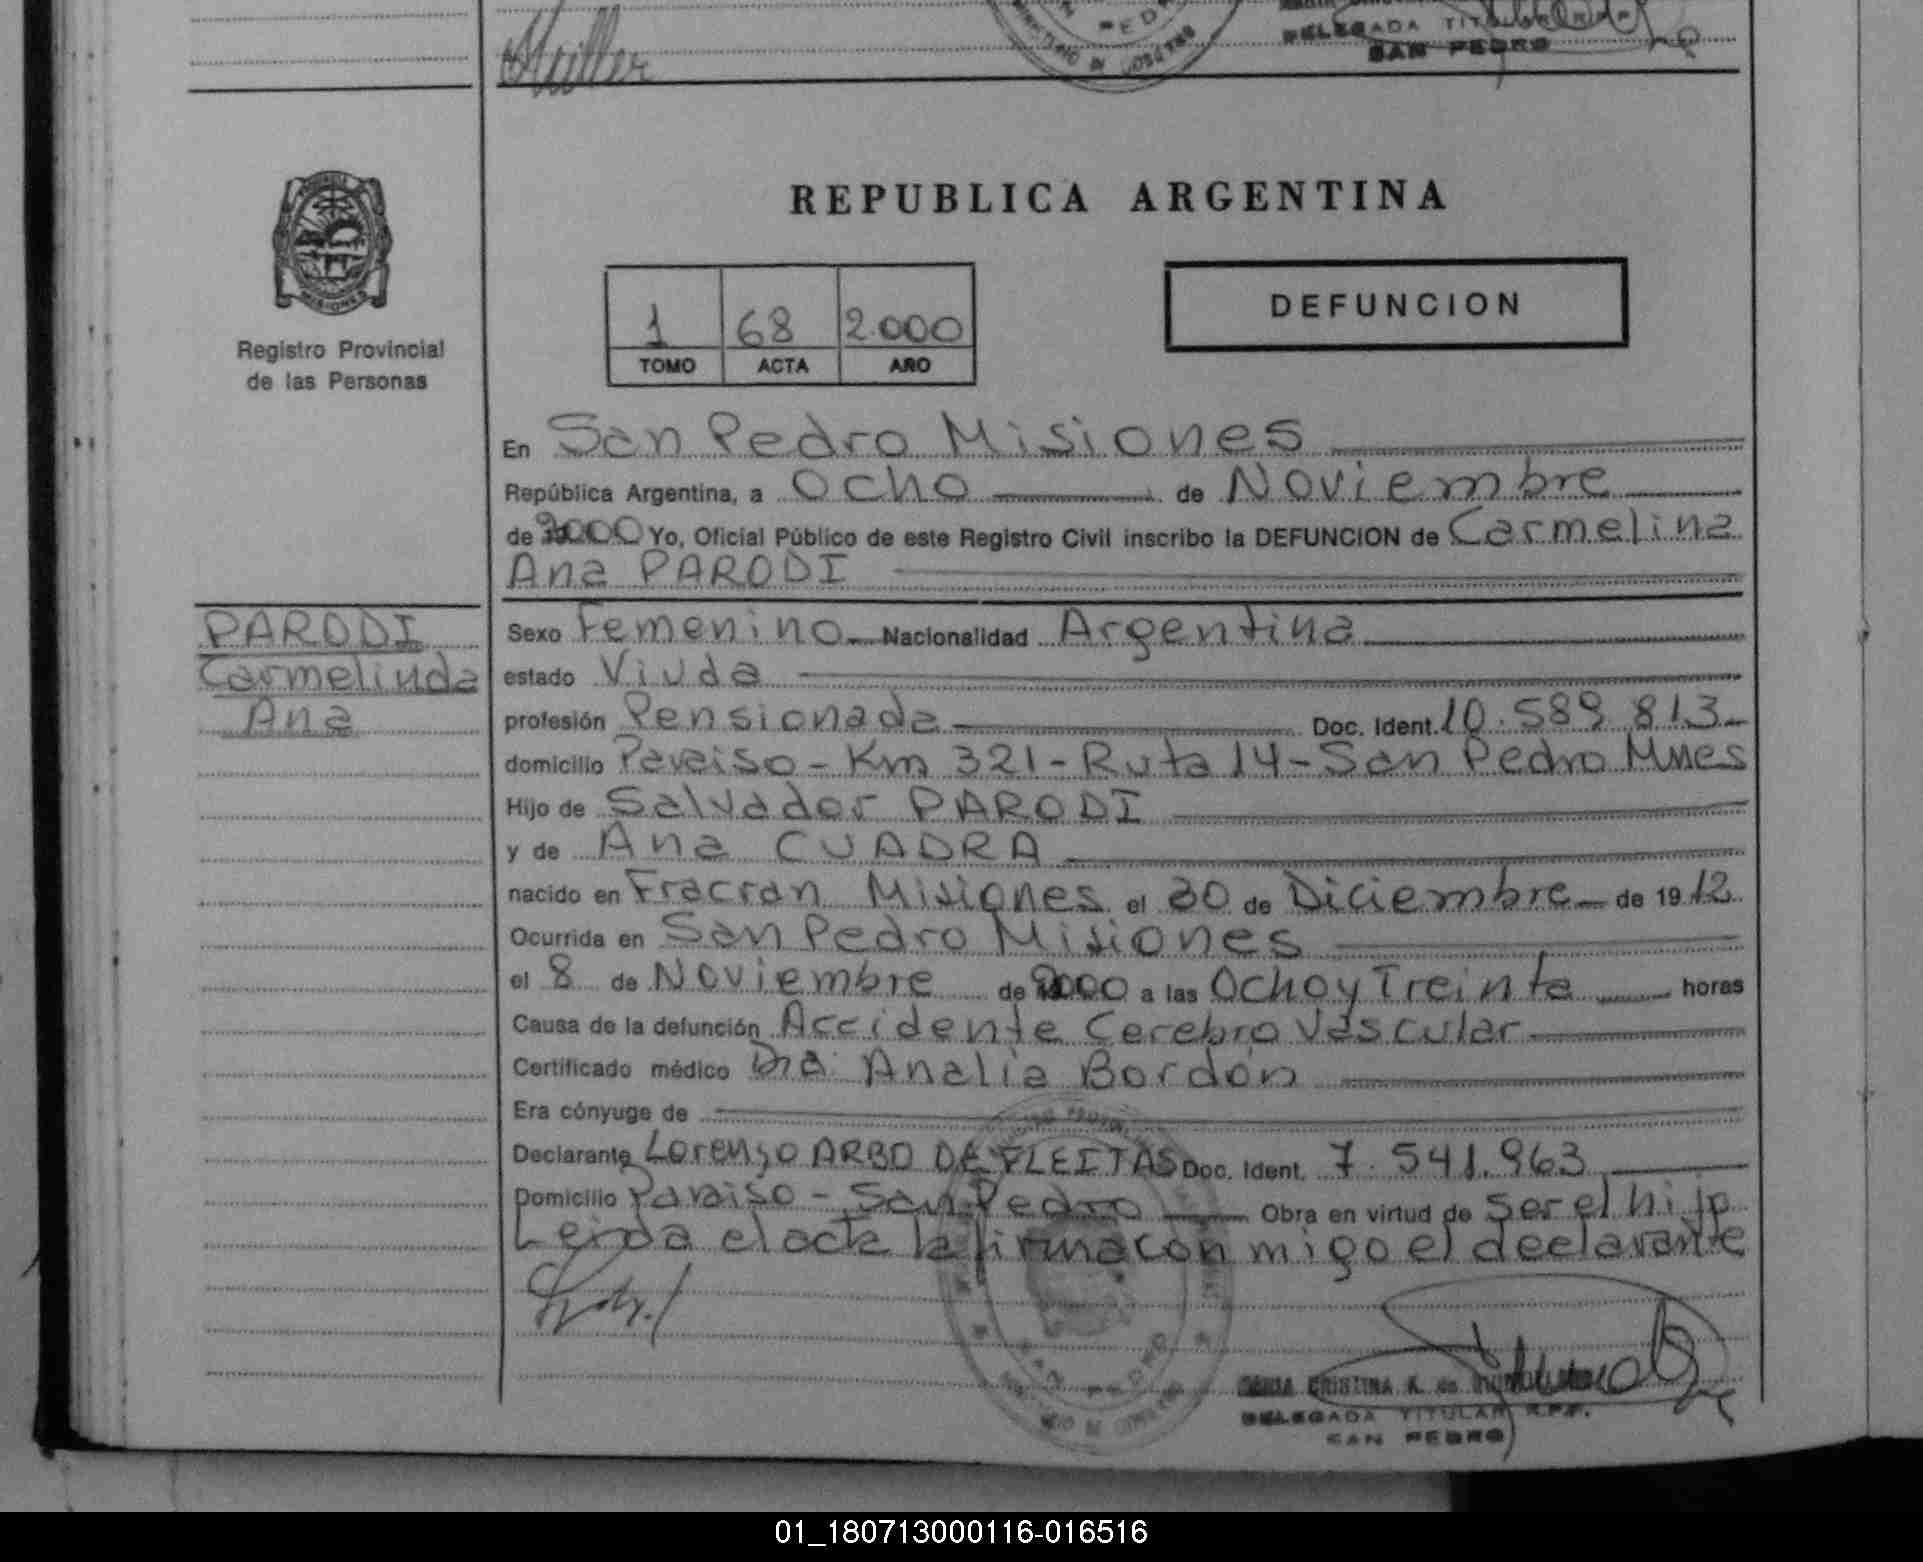 Müller
SAN PEDRO
DELEGADA TITULAR R.P.P.
SAN PEDRO
PROVINCIA DE
MISIONES
Registro Provincial
de las Personas
REPUBLICA ARGENTINA
1 68 2.000
TOMO ACTA AÑO
DEFUNCION
En San Pedro Misiones
República Argentina, a Ocho de Noviembre
de 2000 Yo, Oficial Público de este Registro Civil inscribo la DEFUNCION de Carmelina
Ana PARODI
PARODI
Carmelinda
Ana
Sexo Femenino Nacionalidad Argentina
estado Viuda
profesión Pensionada Doc. Ident. 10.589.813
domicilio Paraiso - Km 321 - Ruta 14 - San Pedro Mnes
Hijo de Salvador PARODI
y de Ana CUADRA
nacido en Fracran Misiones el 30 de Diciembre de 1912
Ocurrida en San Pedro Misiones
el 8 de Noviembre de 2000 a las Ocho y Treinta horas
Causa de la defunción Accidente Cerebro Vascular
Certificado médico Dra. Analía Bordón
Era cónyuge de
Declarante Lorenzo ARBO DE FLEITAS Doc. Ident. 7.541.963
Domicilio Paraiso - San Pedro Obra en virtud de ser el hijo
Leida el acta la firma con migo el declarante
SAN PEDRO
CRISTINA K. de
DELEGADA TITULAR R.P.P.
SAN PEDRO
01_180713000116-016516